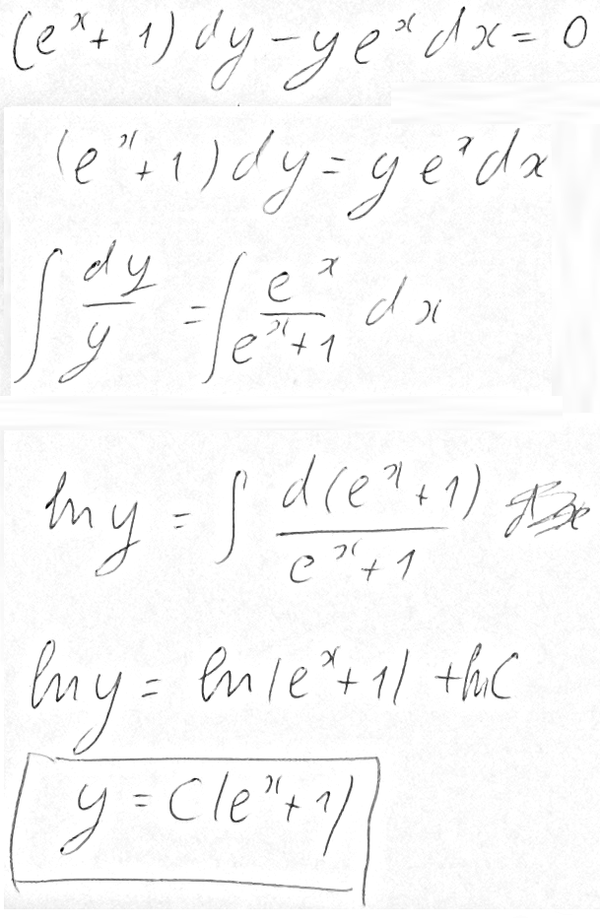 (eˣ + 1) dy − y eˣ dx = 0
(eˣ + 1) dy = y eˣ dx
∫ dy/y = ∫ eˣ/(eˣ + 1) dx
ln y = ∫ d(eˣ + 1)/(eˣ + 1)
ln y = ln |eˣ + 1| + ln C
y = C(eˣ + 1)